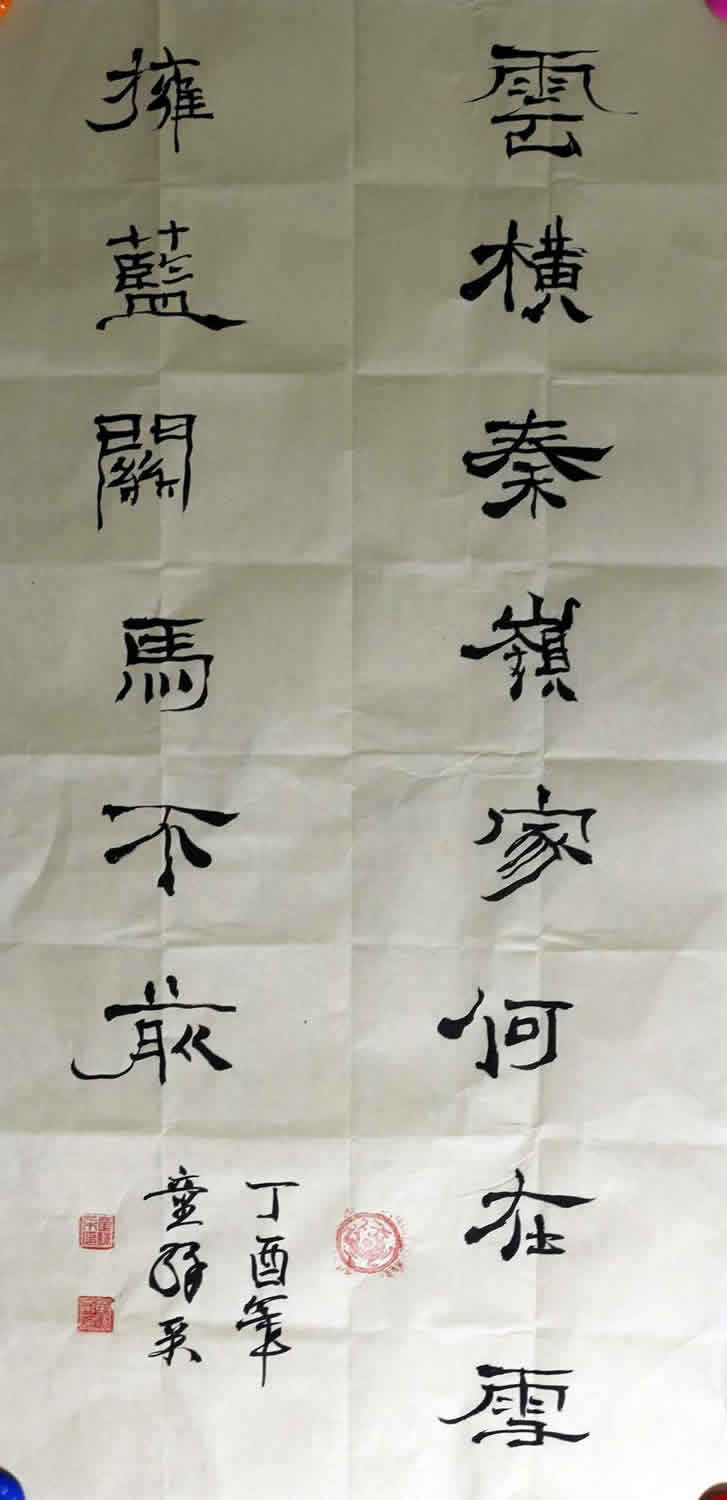 雲橫秦嶺家何在雪
擁藍關馬不前
丁酉年
童